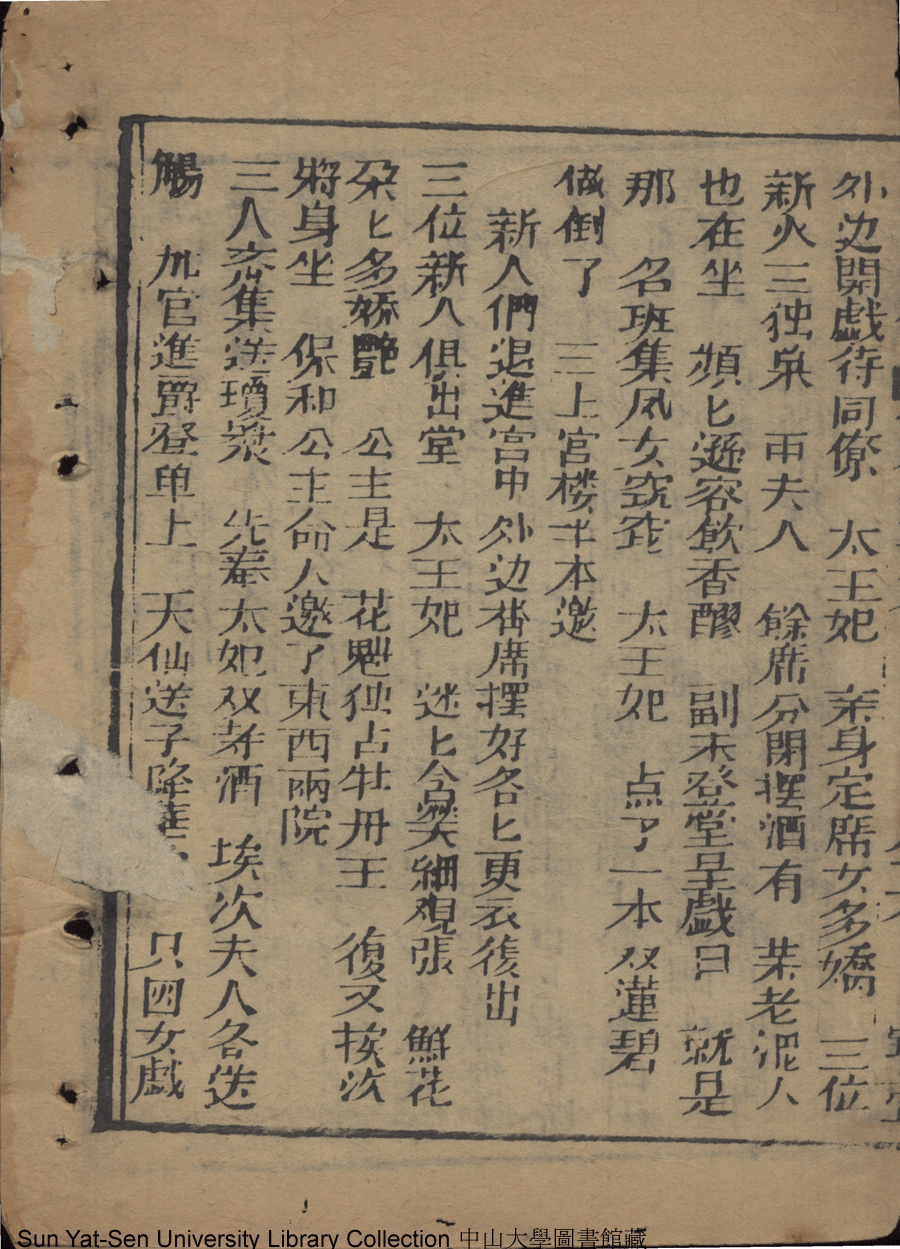 外边開戲待同僚　太王妃　亲身定席女多嬌　三位
新火三独桌　两夫人　餘席分開摆酒有　某老泥人
也在坐　頻匕遜容飲香醪　副末登堂呈戲目　就是
那　名班集凤女窈窕　太王妃　点了一本双蓮碧
做倒了　三上官楼半本邀
新人們退進宫中外边 席摆好各匕更衣復出
三位新人俱出堂　太王妃　迷匕含笑細观張　鮮花
朶匕多嬌艷　公主是　花魁独占牡丹王　復又挨次
將身坐　保和公主命人邀了東西兩院
三人齐集送瓊漿　先奉太妃双寿酒　挨次夫人各送
觴　加官進爵登单上　天仙送子降　只四女戲
Sun Yat-Sen University Library Collection 中山大學圖書館藏